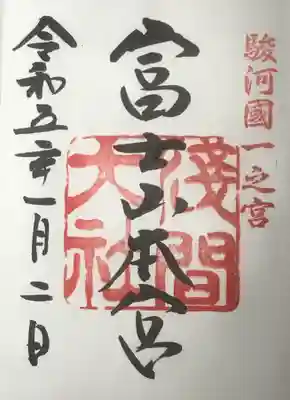 駿河國一之宮
富士山本宮
淺間大社
令和五年一月二日